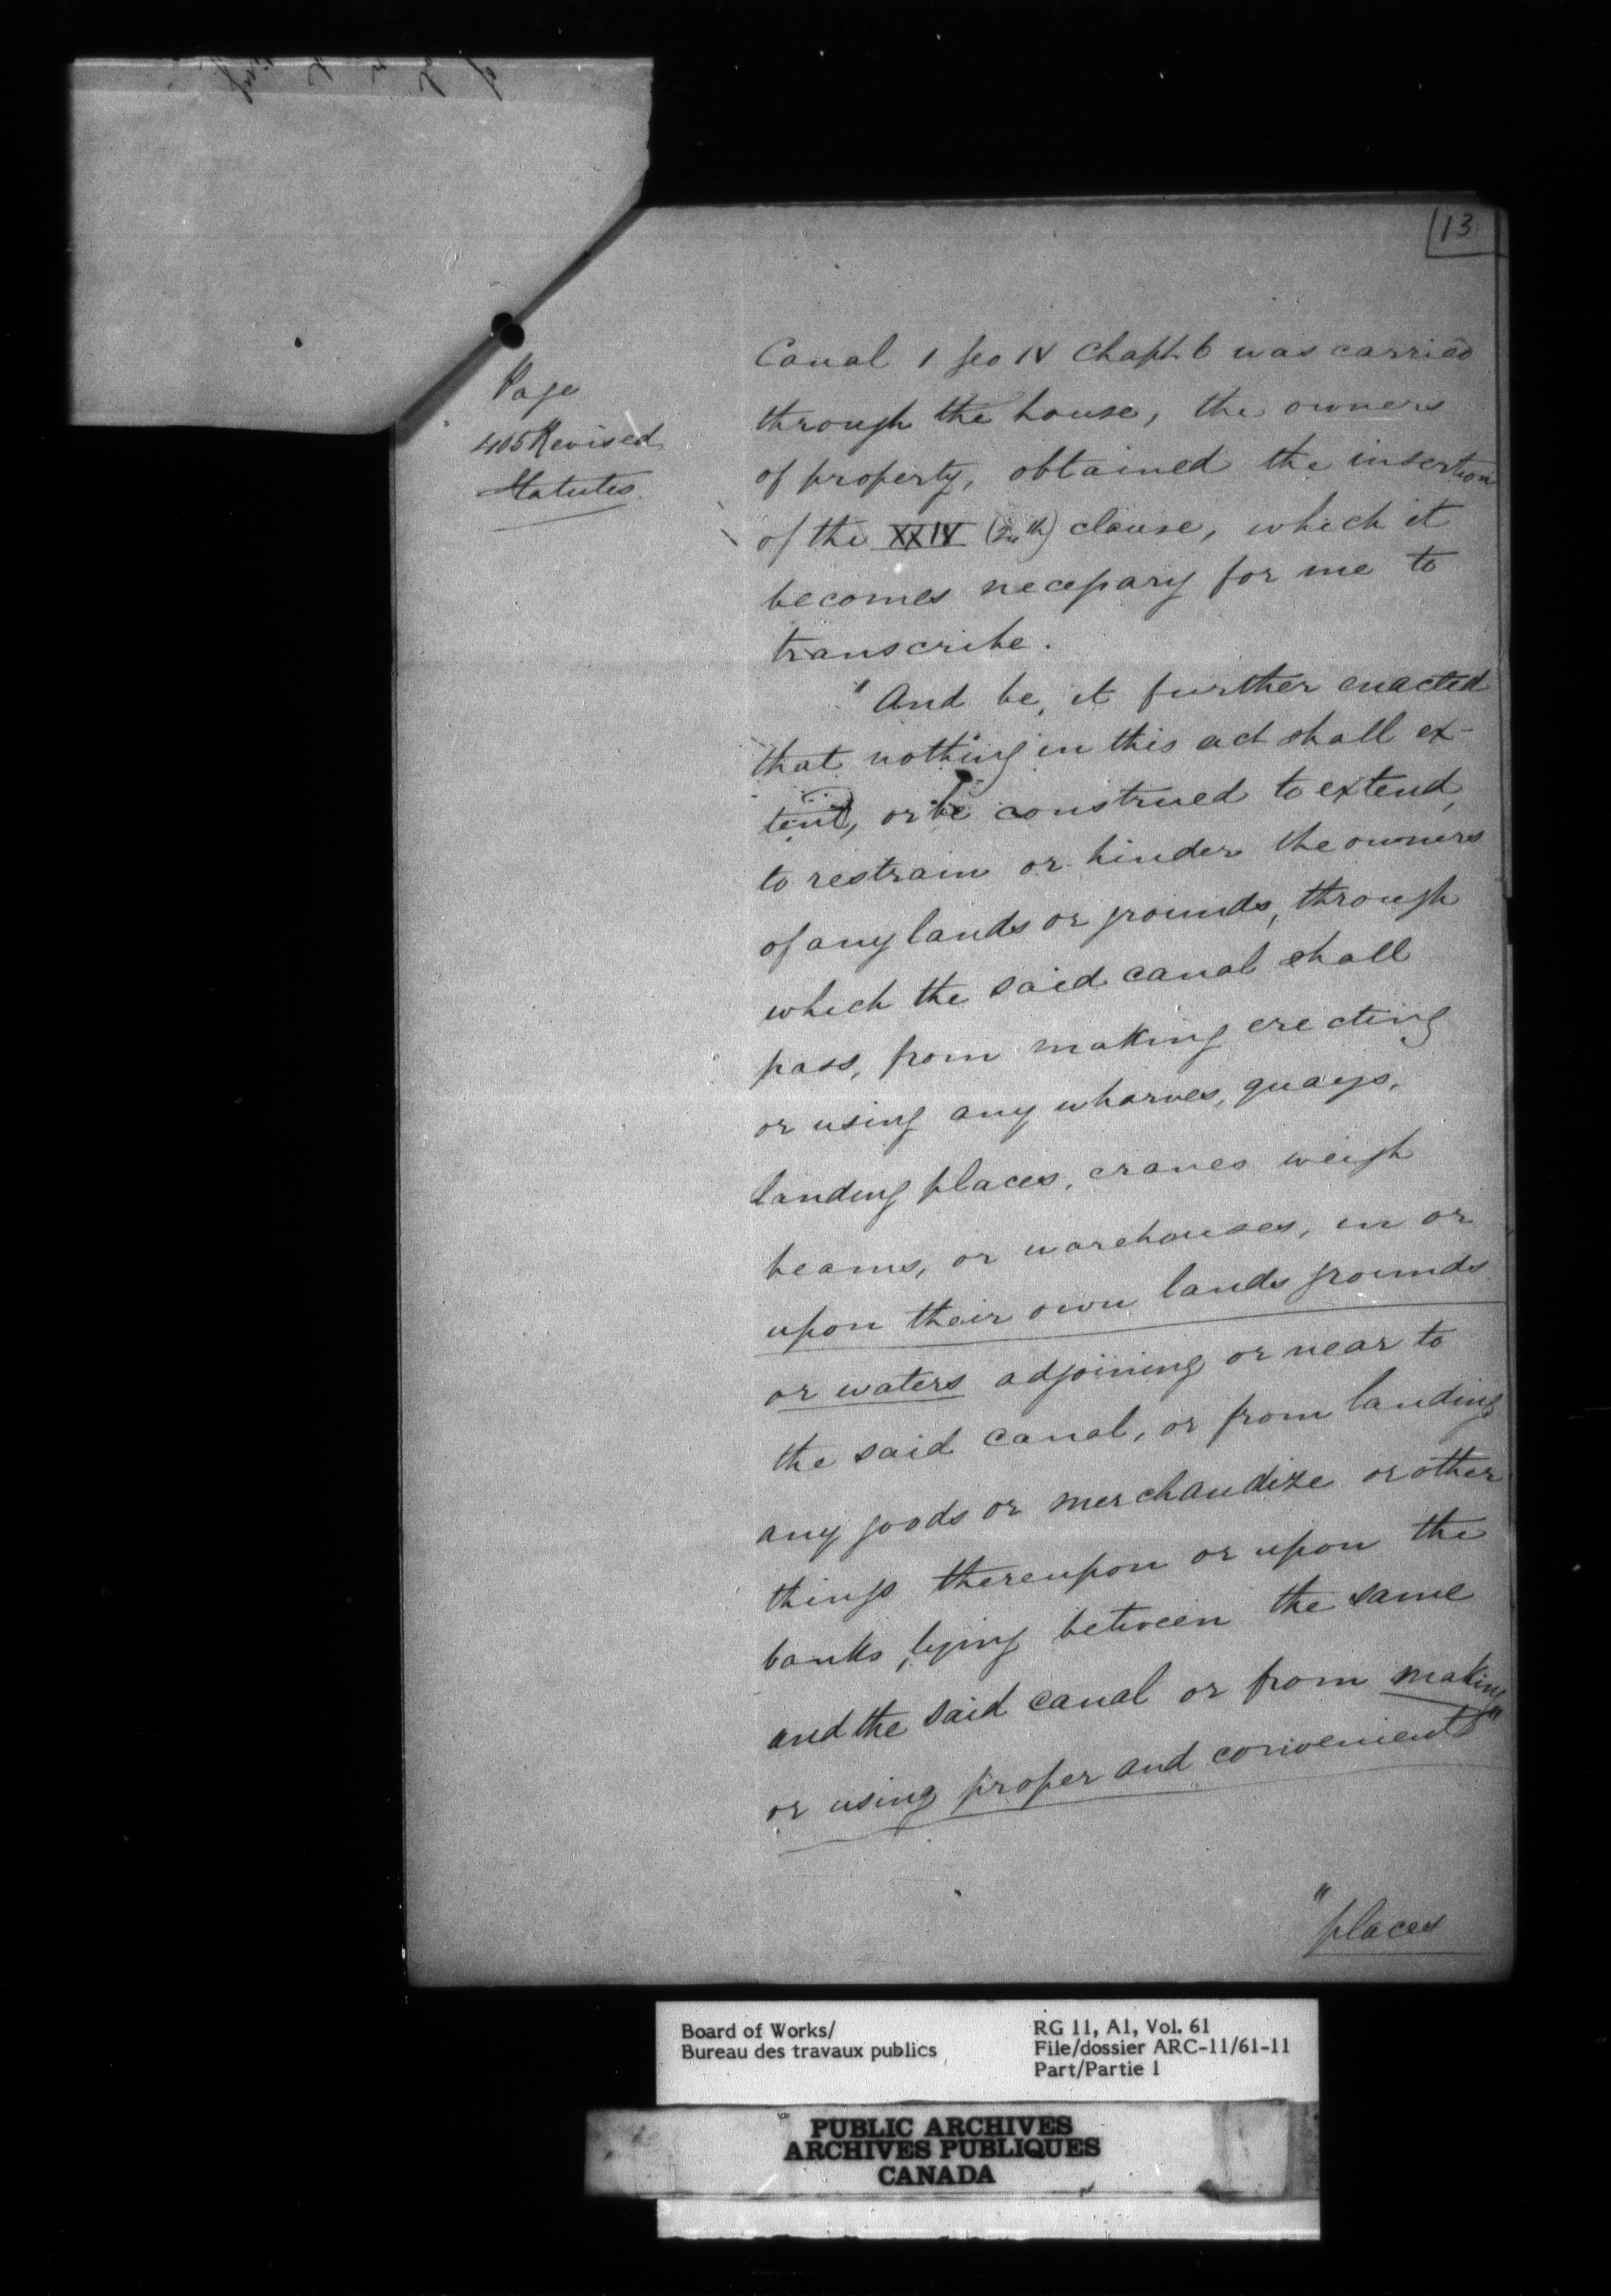 13
Page
405 Revised
Statutes.
Canal 1 Geo IV Chapt. 6 was carried
through the house, the owners
of property, obtained the insertion
of the XXIV (24th) clause, which it
becomes necessary for me to
transcribe.
"And be, it further enacted
that nothing in this act shall ex-
tend, or be construed to extend,
to restrain or hinder the owners
of any lands or grounds, through
which the said canal shall
pass, from making erecting
or using any wharves, quays,
landing places, cranes weigh
beams, or warehouses, in or
upon their own lands grounds
or waters adjoining or near to
the said canal, or from landing
any goods or merchandize or other
things thereupon or upon the
banks, lying between the same
and the said canal or from making
or using proper and convenient"
"places
Board of Works/
Bureau des travaux publics
RG 11, A1, Vol. 61
File/dossier ARC-11/61-11
Part/Partie 1
PUBLIC ARCHIVES
ARCHIVES PUBLIQUES
CANADA